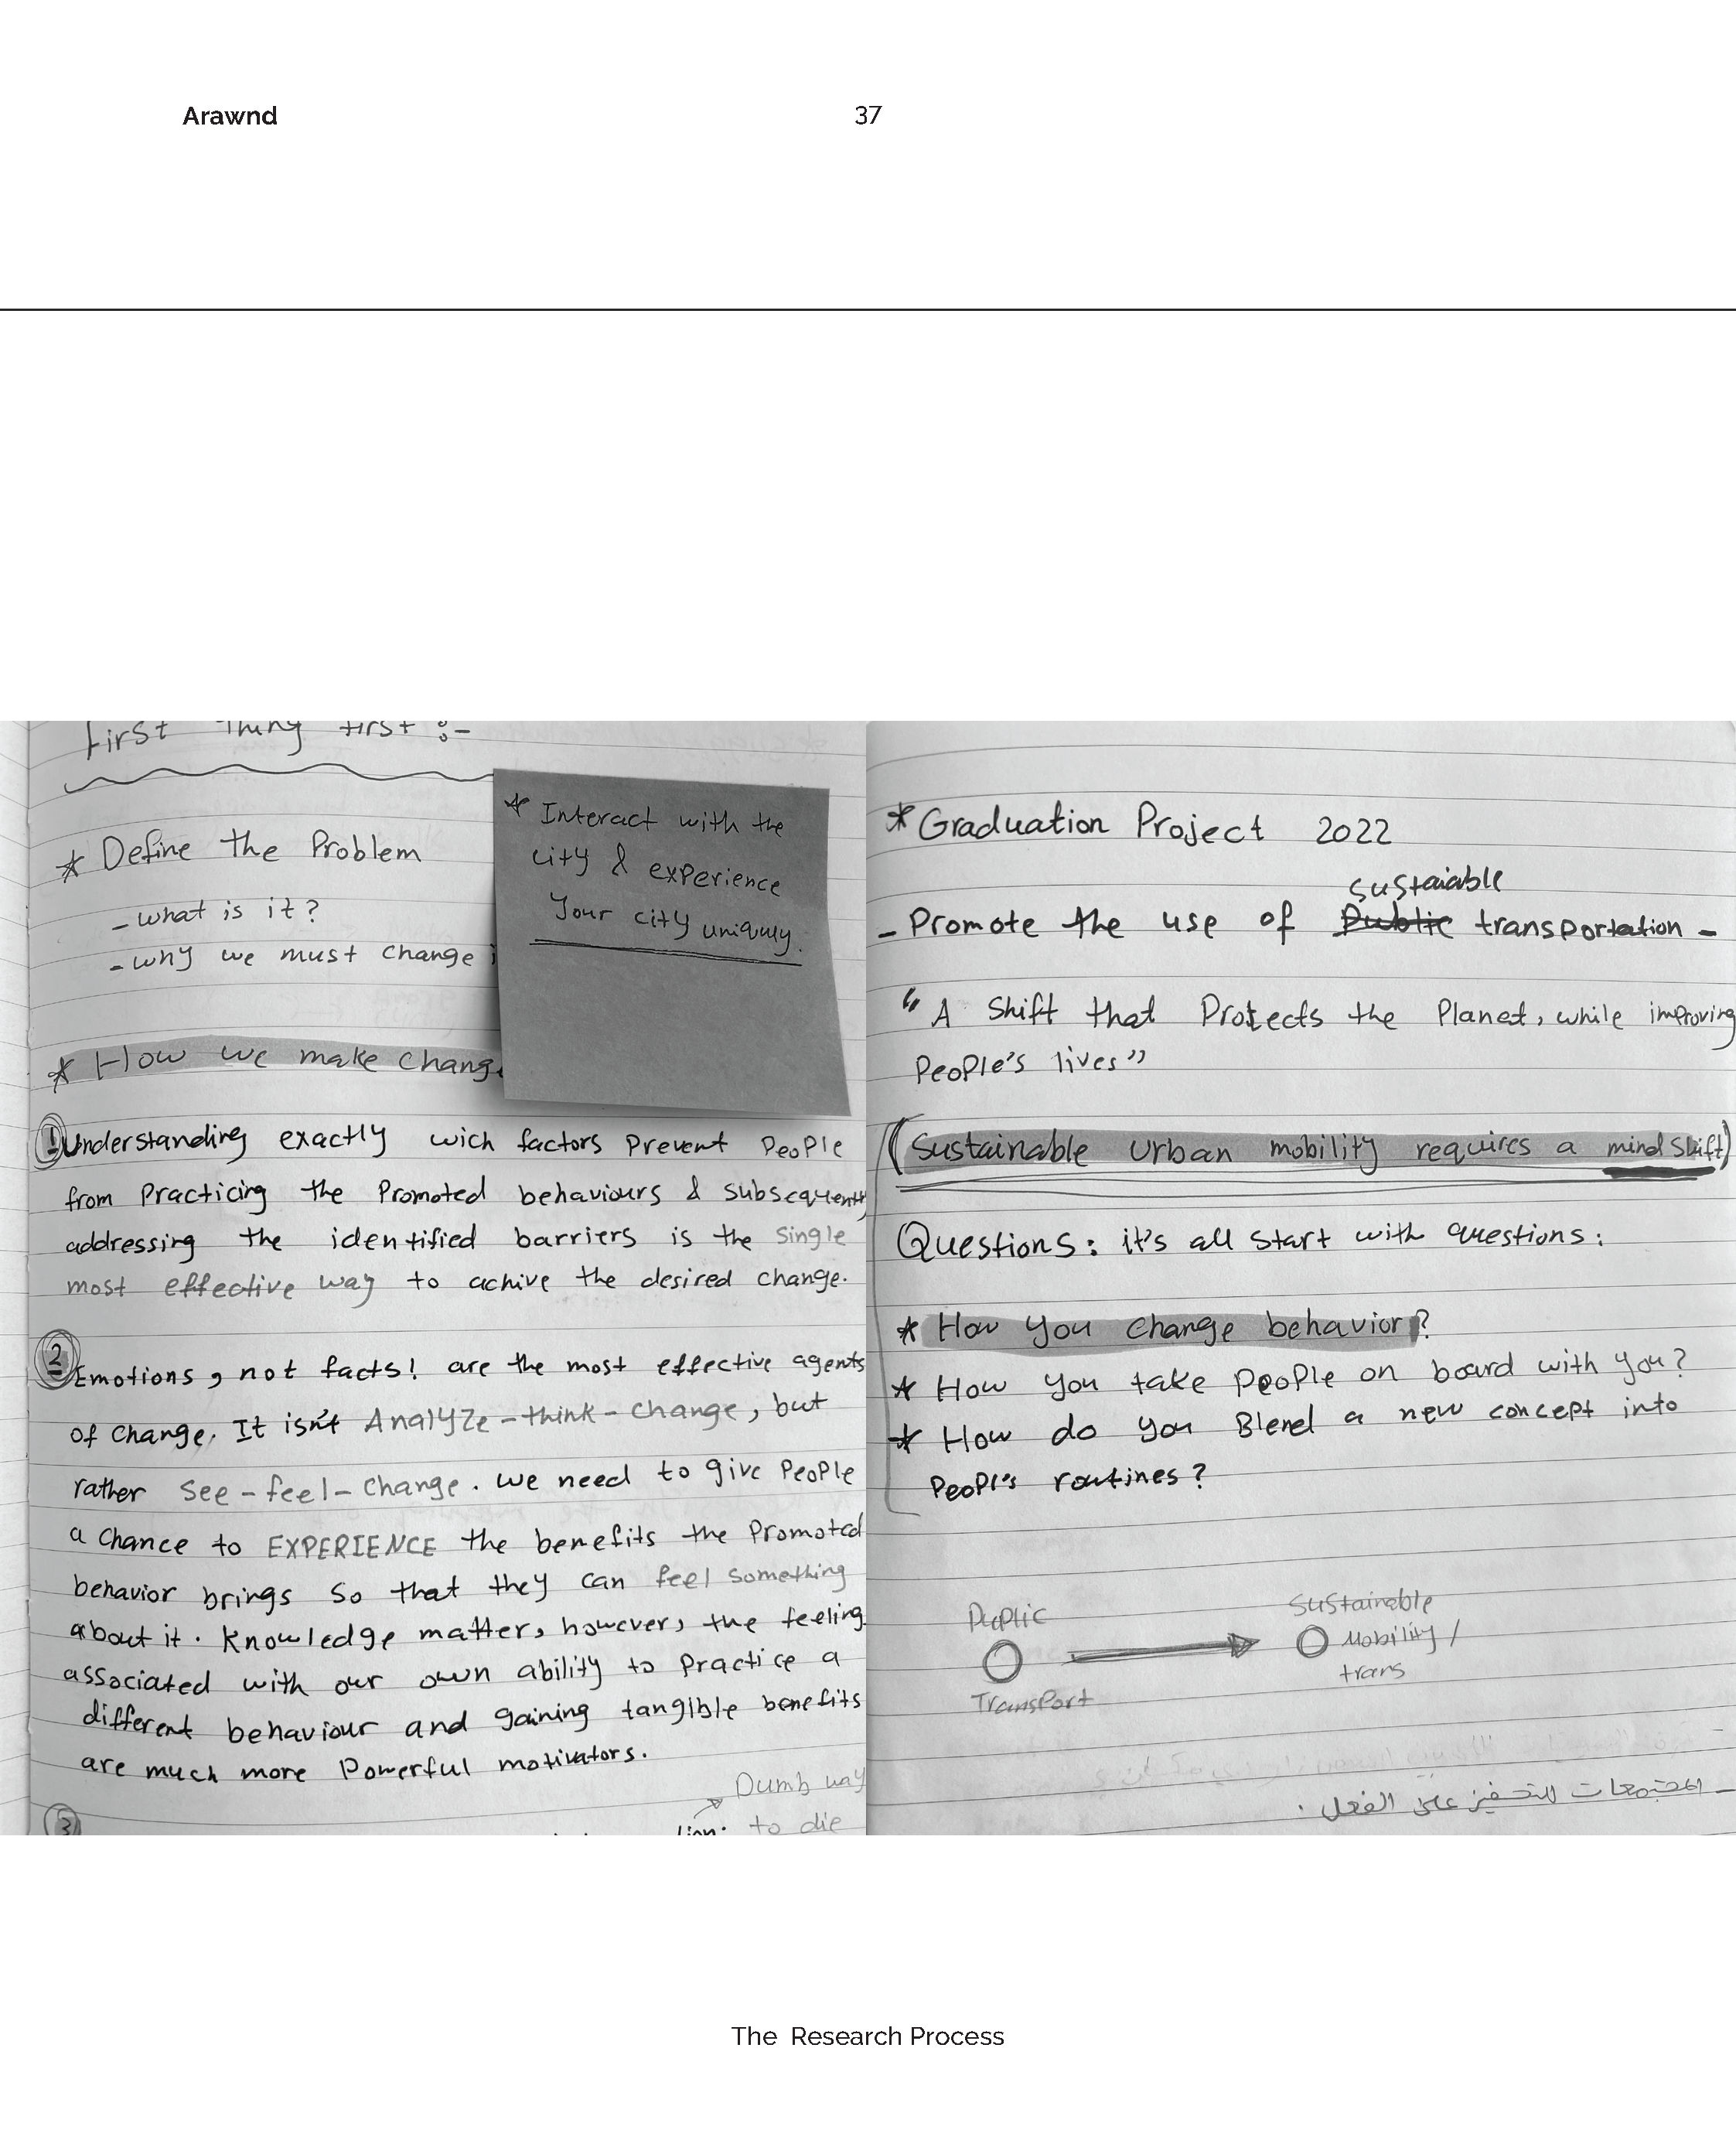 Arawnd
37
First Thing first :-
* Define the Problem
- what is it?
- why we must change
* How we make chang
* Interact with the
city & experience
Your city uniquly.
1 Understanding exactly wich factors prevent people
from practicing the promoted behaviours & subsequently
addressing the identified barriers is the single
most effective way to achive the desired change.
2 Emotions, not facts! are the most effective agents
of change. It isn't Analyze-think-change, but
rather see-feel-change. we need to give people
a chance to EXPERIENCE the benefits the promoted
behavior brings so that they can feel something
about it. Knowledge matter, however, the feeling
associated with our own ability to practice a
different behaviour and gaining tangible benefits
are much more powerful motivators.
3
Dumb way
to die
* Graduation Project 2022
sustaiable
- Promote the use of Public transportation -
"A Shift that Protects the Planet, while improving
People's lives"
(Sustainable urban mobility requires a mind shift)
Questions: it's all start with questions:
* How you change behavior?
* How you take people on board with you?
* How do you Blend a new concept into
Peopl's routines?
Puplic
Transport
Sustainable
Mobility /
trans
للتحفيز على الفعل .
The Research Process